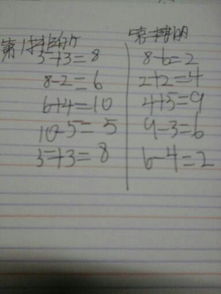 5+3=8
8-2=6
6+4=10
10-5=5
5+3=8
8-6=2
2+2=4
4+5=9
9-3=6
6-4=2